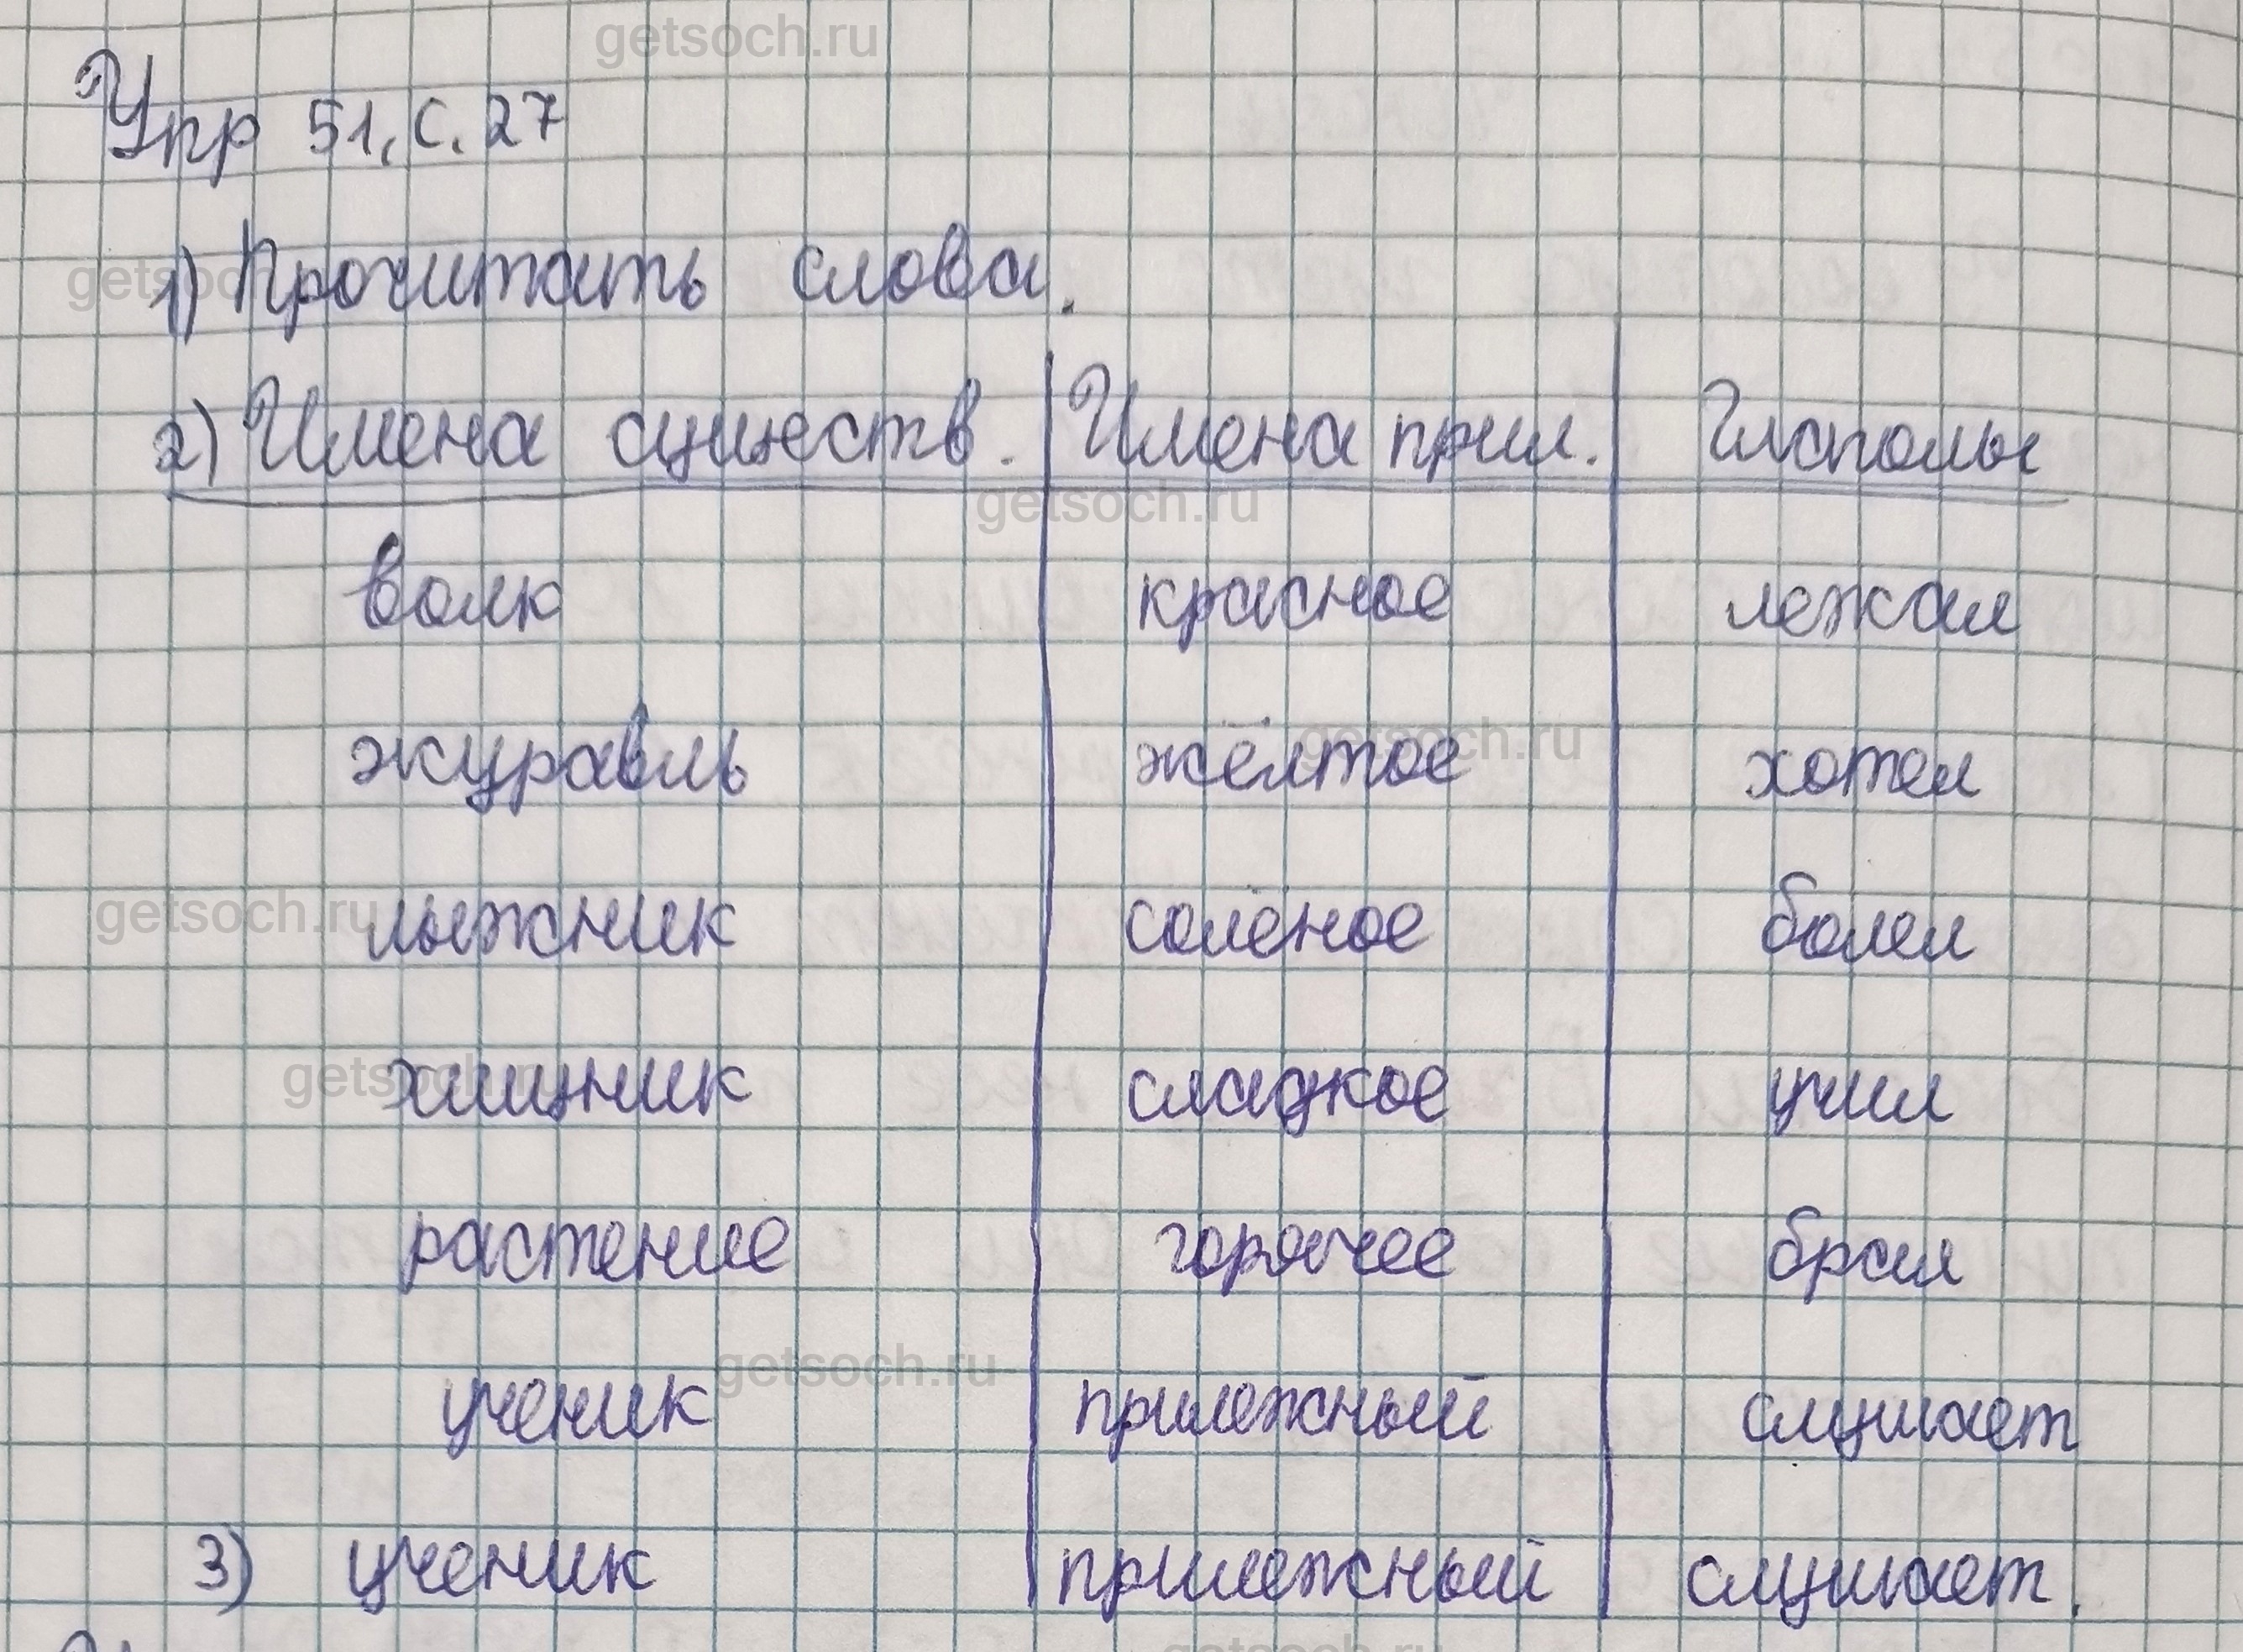 getsoch.ru
Упр 51, с. 27
getsoch.ru
1) Прочитать слова.
2) Имена существ. Имена прил. Глаголы
getsoch.ru
волк красное лежал
getsoch.ru
журавль жёлтое хотел
getsoch.ru
лыжник солёное болел
getsoch.ru
хищник сладкое учил
растение горячее брал
getsoch.ru
ученик прилежный слушает
3) ученик прилежный слушает.
getsoch.ru